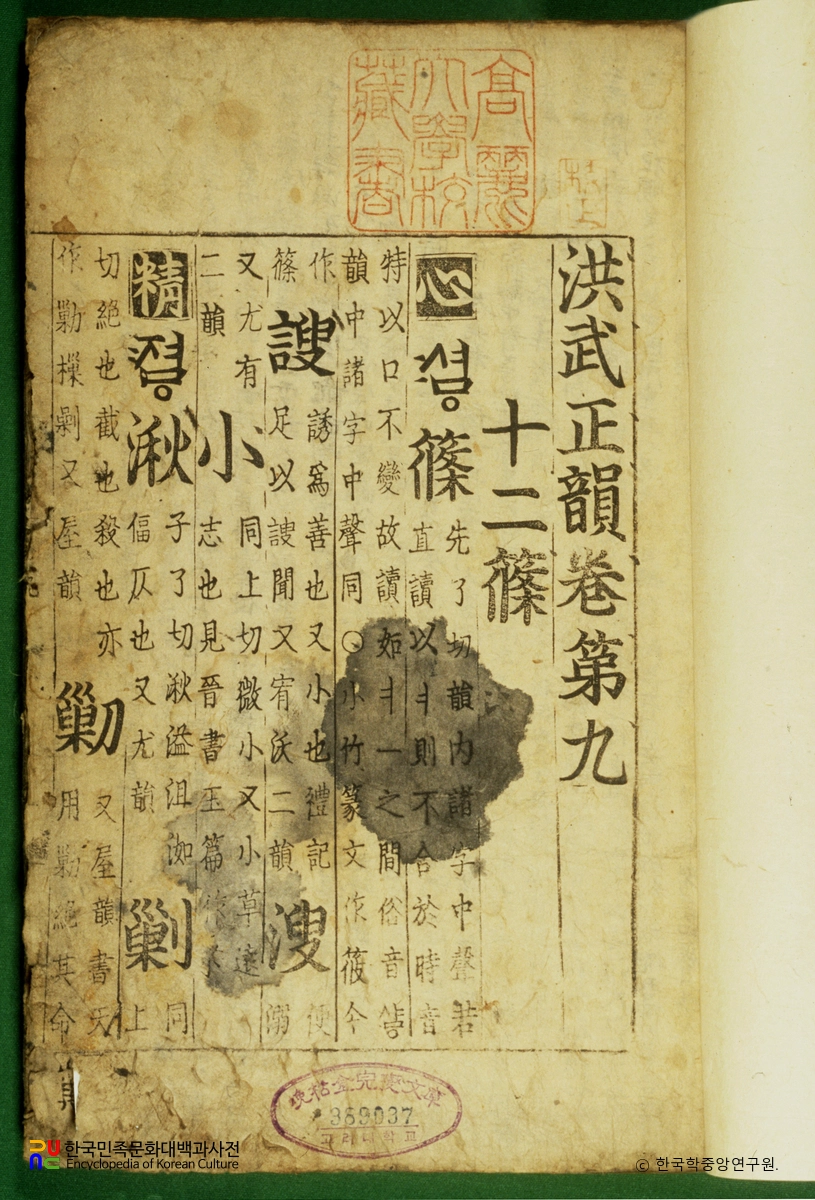 高麗
大學校
藏書
洪武正韻卷第九
十二篠
心 ᄼᅧᇢ 篠 先了切韻內諸字中聲若
直讀以ㅕ則不合於時音
特以口不變故讀如ㅕㅡ之間俗音
韻中諸字中聲同〇小竹篆文作筱今
作
篠
謏 誘爲善也又小也禮記
足以謏聞又宥沃二韻
溲 便
溺
又尤有
二韻
小 同上切微小又小草遠
志也見晉書玉篇作
精 ᅎᅧᇢ 湫 子了切湫溢沮洳
偪仄也又尤韻
剿 同
上
切絕也截也殺也亦
作勦樔剿又屋韻
勦 又屋韻書天
用勦絕其命
369037
고려대학교
한국민족문화대백과사전
Encyclopedia of Korean Culture
© 한국학중앙연구원.